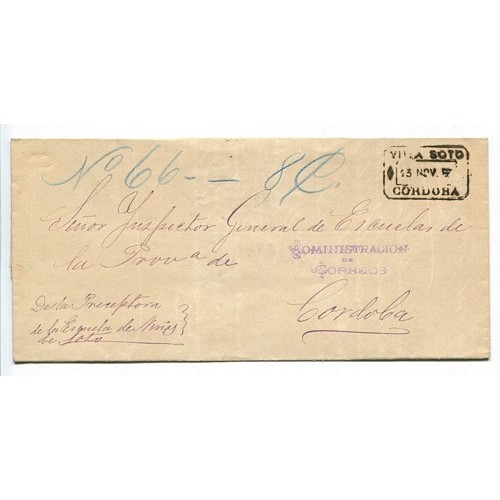 No 66 -- 8 C.
VILLA SOTO
13 NOV.
CÓRDOBA
Señor Inspector General de Escuelas de
la Prova de
ADMINISTRACION
DE
CORREOS
Cordoba
De la Preceptora
de la Escuela de Niñas
de Soto